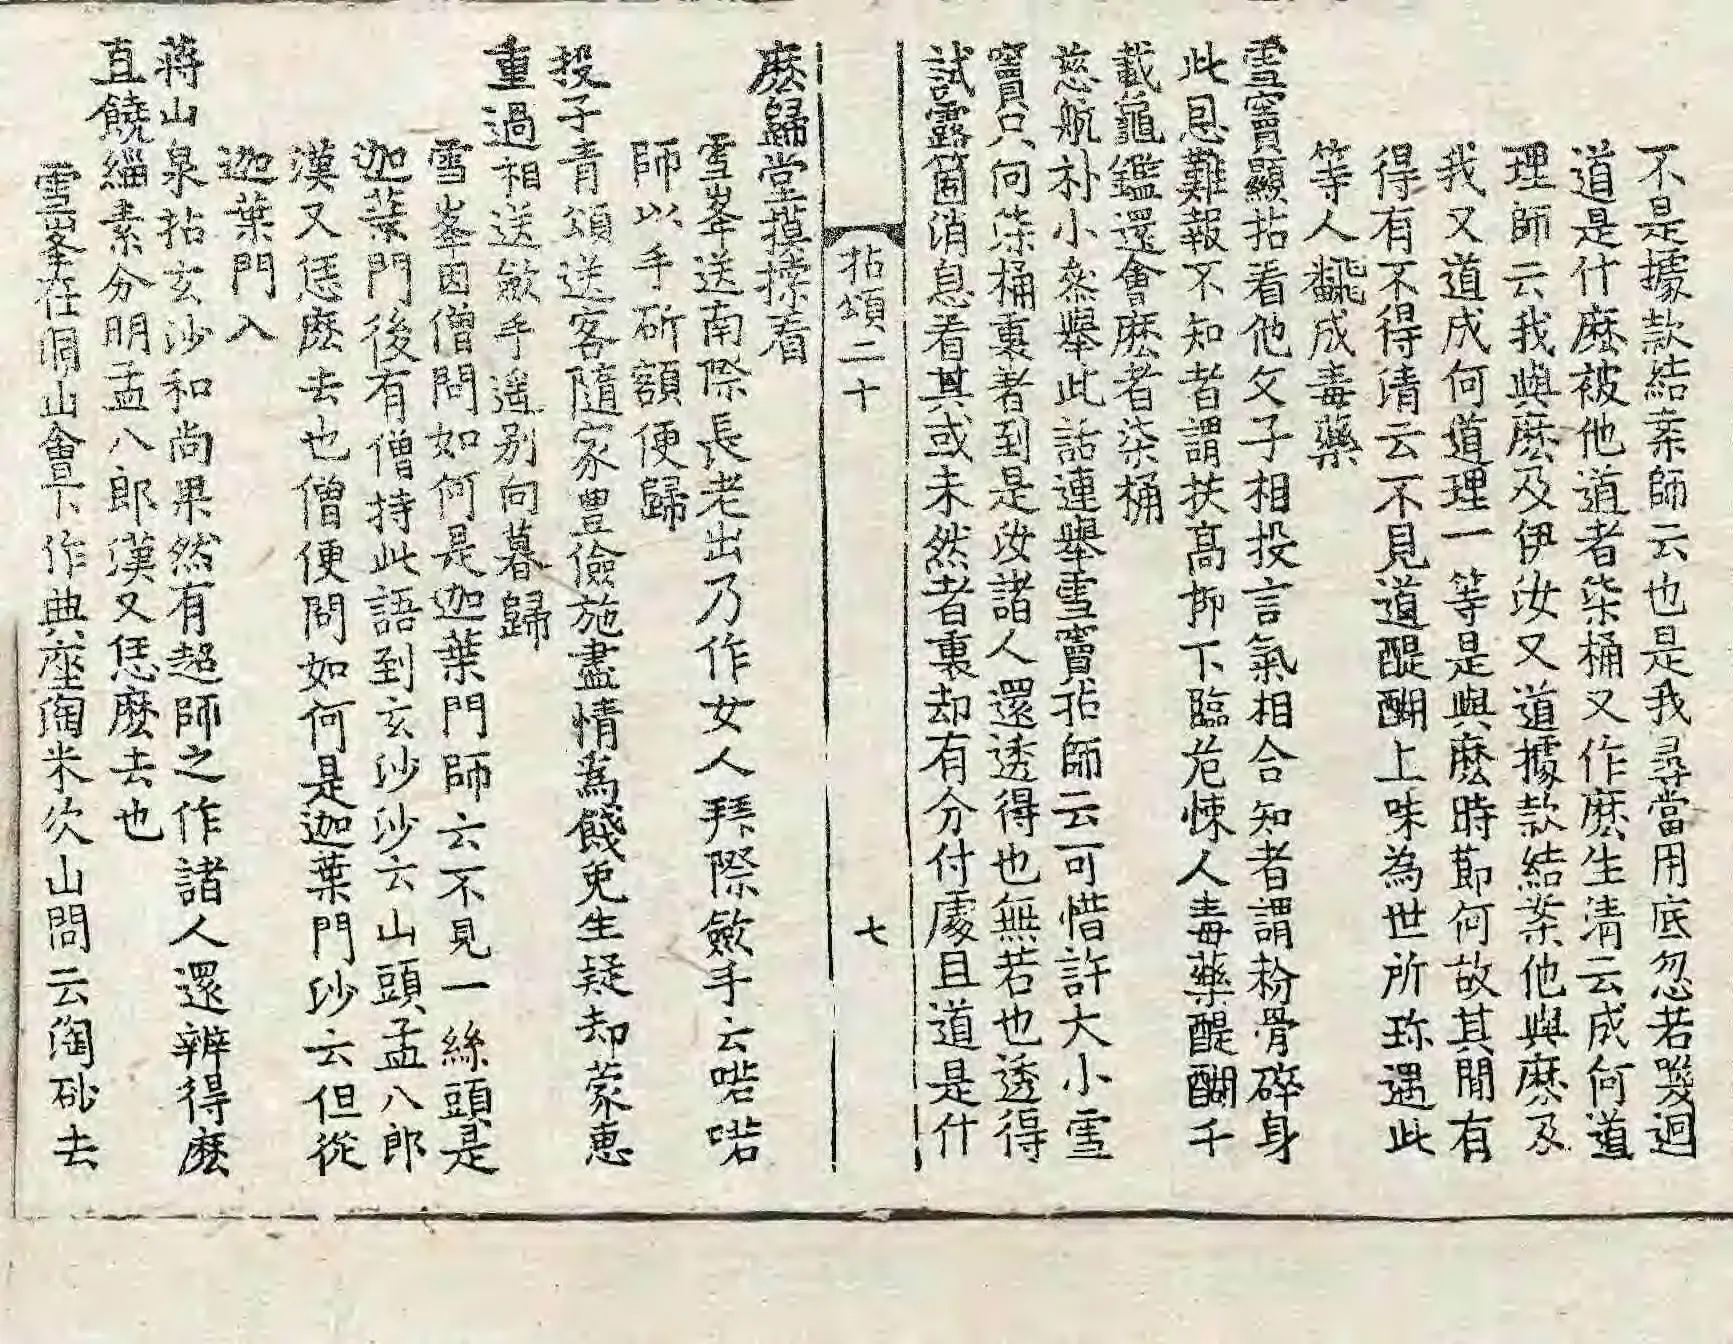 不是據款結案師云也是我尋當用底忽若嘰迴
道是什麽被他道者柒桶又作麽生清云成何道
理師云我與麽及伊汝又道據款結案他與麽及
我又道成何道理一等是與麽時莭何故其閒有
得有不得清云不見道醍醐上味為世所珎遇此
等人飜成毒藥
雪竇顯拈看他父子相投言氣相合知者謂粉骨碎身
此恩難報不知者謂扶髙抑下臨危悚人毒藥醍醐千
載龜鑑還會麽者柒桶
慈航朴小叅舉此話連舉雪竇拈師云可惜許大小雪
竇只向柒桶裏著到是汝諸人還透得也無若也透得
試露箇消息看其或未然者裏却有分付處且道是什
拈頌二十 七
麽歸堂摸捸看
雪峯送南際長老出乃作女人拜際斂手云喏喏
師以手斫額便歸
投子青頌送客隨家豊儉施盡情為餞免生疑却蒙惠
重過相送斂手遥別向暮歸
雪峯因僧問如何是迦葉門師云不見一絲頭是
迦葉門後有僧持此語到玄沙沙云山頭孟八郎
漢又恁麽去也僧便問如何是迦葉門沙云但從
迦葉門入
蔣山泉拈玄沙和尚果然有超師之作諸人還辨得麽
直饒緇素分明孟八郎漢又恁麽去也
雪峯在洞山會下作典座淘米次山問云淘砂去